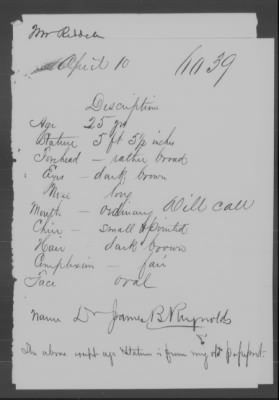 Mr Riddell
April 10
6039
Description
Age 25 yrs
Stature 5 ft 5½ inches
Forehead – rather broad
Eyes – dark brown
Nose long
Mouth – ordinary Will call
Chin – small & pointed
Hair dark brown
Complexion – fair
Face oval
Name Dr James B Reynolds
The above except age & stature is from my old passport.